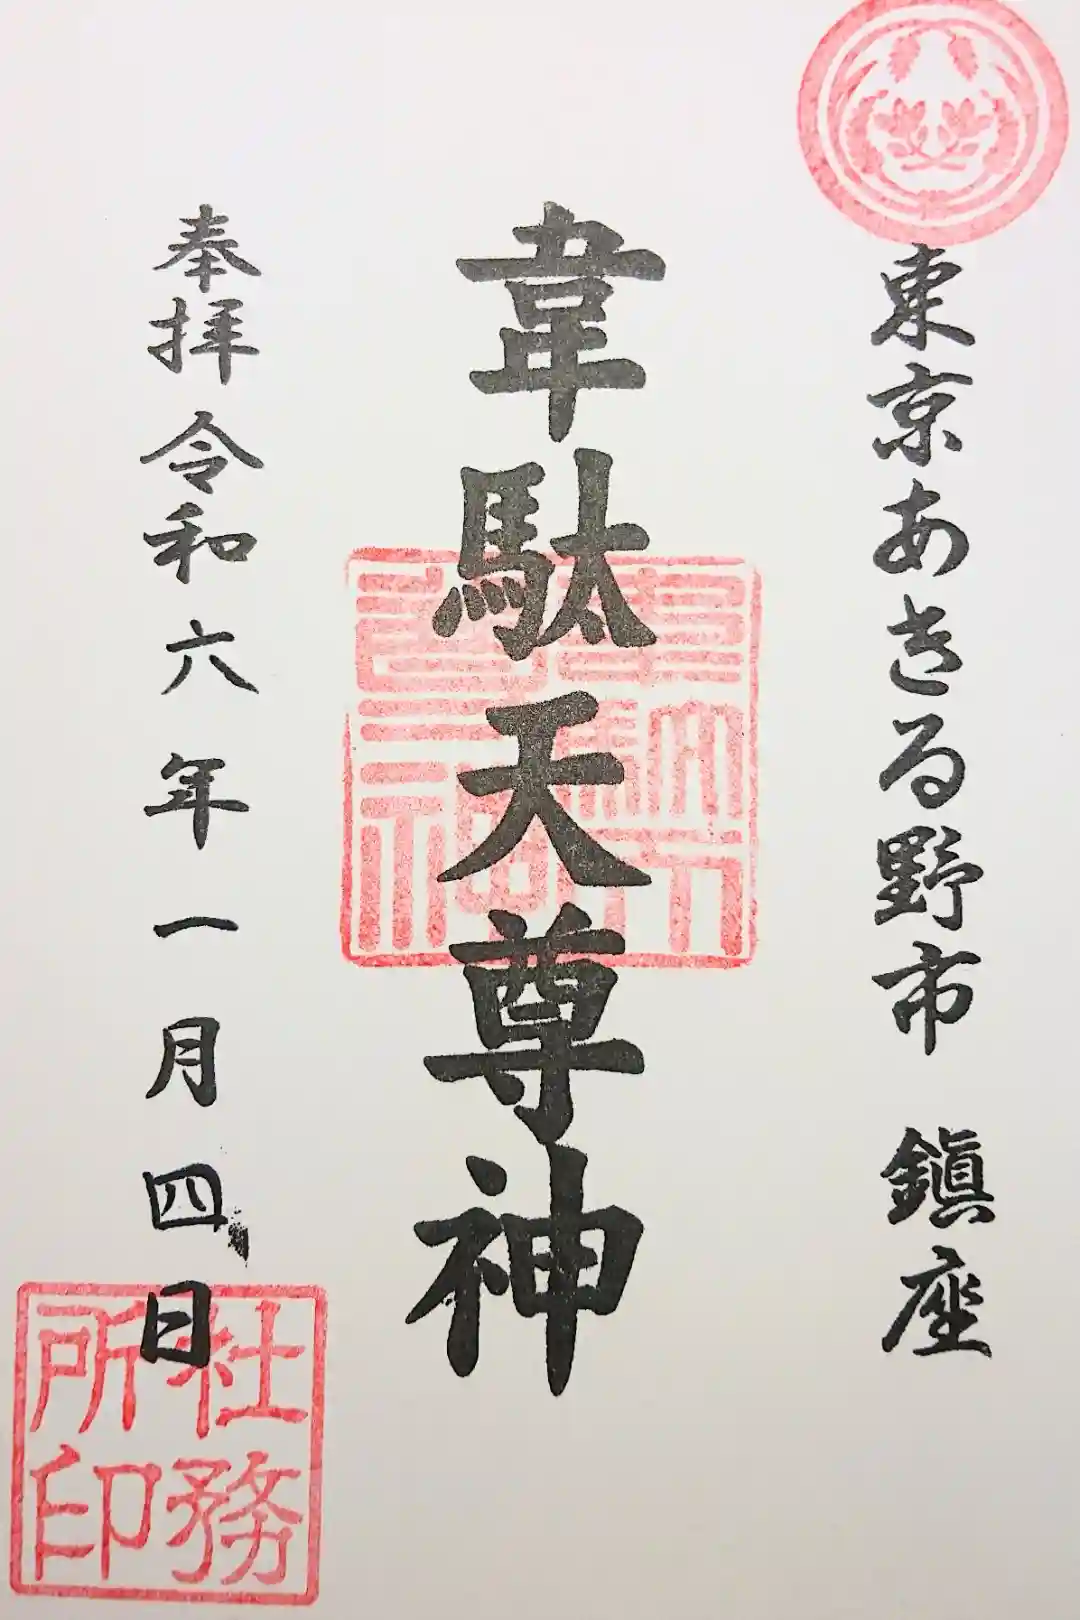 東京あきる野市　鎭座
韋駄天尊神
奉拝　令和六年一月四日
社務所印